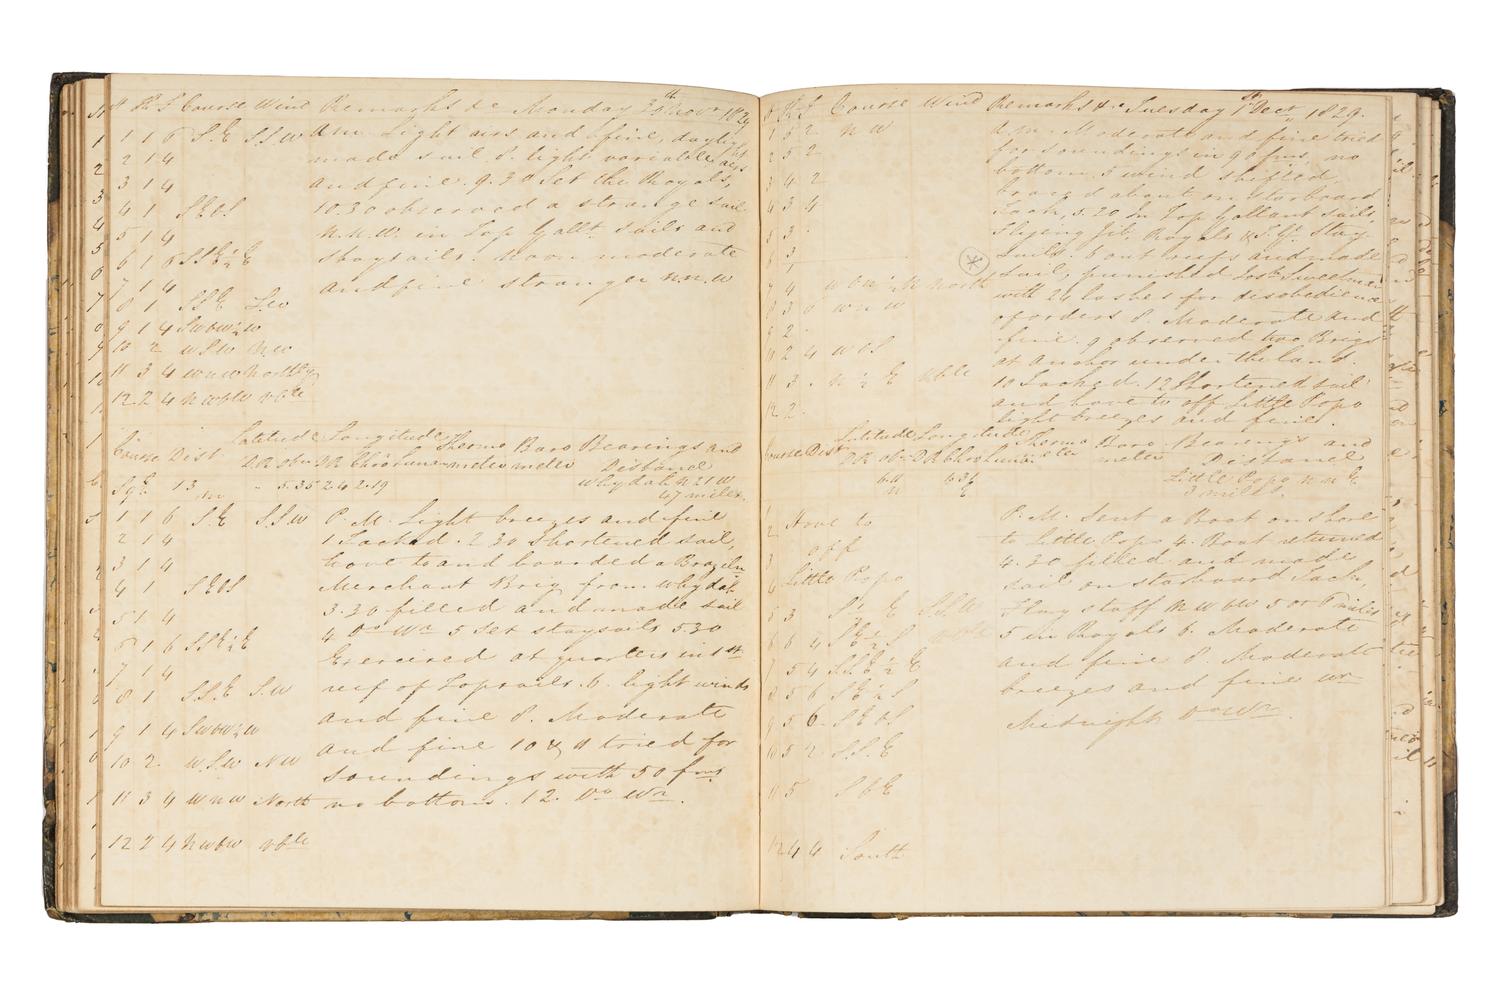 H K F Course Wind Remarks &c Monday 30th Novr 1829
1 1 6 S.E S.S.W A.M. Light airs and fine, daylight
2 1 4 made sail 8. light variable airs
3 1 4 and fine. 9.30 Set the Royals,
4 1 SEbS 10.30 observed a strange sail
5 1 4 N.N.W. in Top Gallt. sails and
6 1 6 SSE½E staysails. Noon moderate
7 1 4 and fine stranger N.N.W
8 1 SSE S.W
9 1 4 SWbW½W
10 2 WSW NW
11 3 4 WNW North
12 2 4 NWbW vble
Course Dist Latitude Longitude Thermo Baro Bearings and
DR obn DR Chro Luna meter meter Distance
13 5.35 2.42 2.19 Whydah N 21 W
m 47 miles.
1 1 6 S.E S.S.W P.M. Light breezes and fine
2 1 4 1 Tacked. 2.30 Shortened sail,
3 1 4 hove to and boarded a Braziln
4 1 SEbS Merchant Brig from Whydah
5 1 4 3.30 filled and made sail
6 1 6 SSE½E 4 Do Wr 5 Set staysails 5.30
7 1 4 Exercised at quarters in 1st
8 1 S.S.E S.W reef of Topsails. 6. light winds
9 1 4 SWbW½W and fine 8. Moderate
10 2. W.S.W NW and fine 10 & 11 tried for
soundings with 50 fms
11 3 4 WNW North no bottom. 12. Do Wr.
12 2 4 NWbW vble
H K F Course Wind Remarks &c Tuesday 1st Decr 1829.
1 5 2 NW A.M. Moderate and fine tried
2 5 2 for soundings in 90 fms. no
3 4 2 bottom. 3 wind shifted,
4 3 4 tack, 5.20 in Top Gallant sails,
5 3 Flying Jib. Royals & S.Gt. Stay
6 3 sails. 6 out reefs and made
7 4 WbN½N North sail, punished Josh Sweetman
8 3 6 WNW with 24 lashes for disobedience
2 of orders 8. Moderate and
fine. 9 observed two Brigs
2 4 WbS at anchor under the land.
11 3 N½E vble 10 Tacked. 12 Shortened sail
12 2 and hove to off Little Popo
light breezes and fine.
Course Dist Latitude Longitude Thermo Baro Bearings and
DR obn DR Chro Luna meter meter Distance
Little Popo NNE
N E 3 miles.
1 Hove to P.M. Sent a Boat on shore
2 off to Little Popo 4. Boat returned
3 Little Popo 4.30 filled and made
4 sail on starboard Tack,
5 3 S½E SSW Flag staff NWbW 5 or 6 miles
6 6 4 SE½S vble 5 in Royals 6. Moderate
7 5 4 SSE½E and fine 8. Moderate
8 5 6 SE½S breezes and fine Wr
9 5 6 SEbS Midnight Do Wr.
10 5 2 S.S.E
11 5 SbE
12 4 4 South